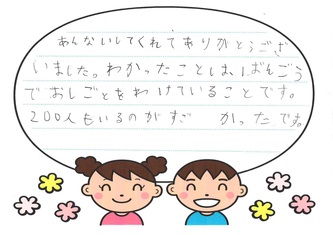 あんないしてくれてありがとうござ
いました。わかったことは、ばんごう
でおしごとをわけていることです。
200人もいるのがすご　かったです。